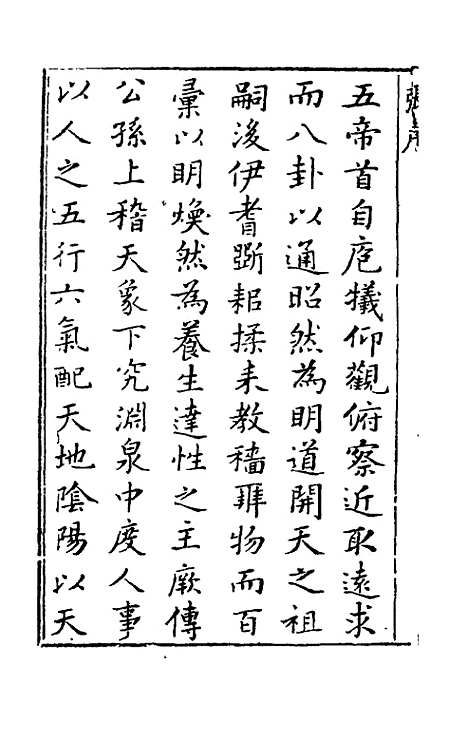 張序
五帝首自庖犧仰觀俯察近取遠求
而八卦以通昭然為明道開天之祖
嗣後伊耆斲耜揉耒教穡辨物而百
彙以明煥然為養生達性之主厥傳
公孫上稽天象下究淵泉中度人事
以人之五行六氣配天地陰陽以天